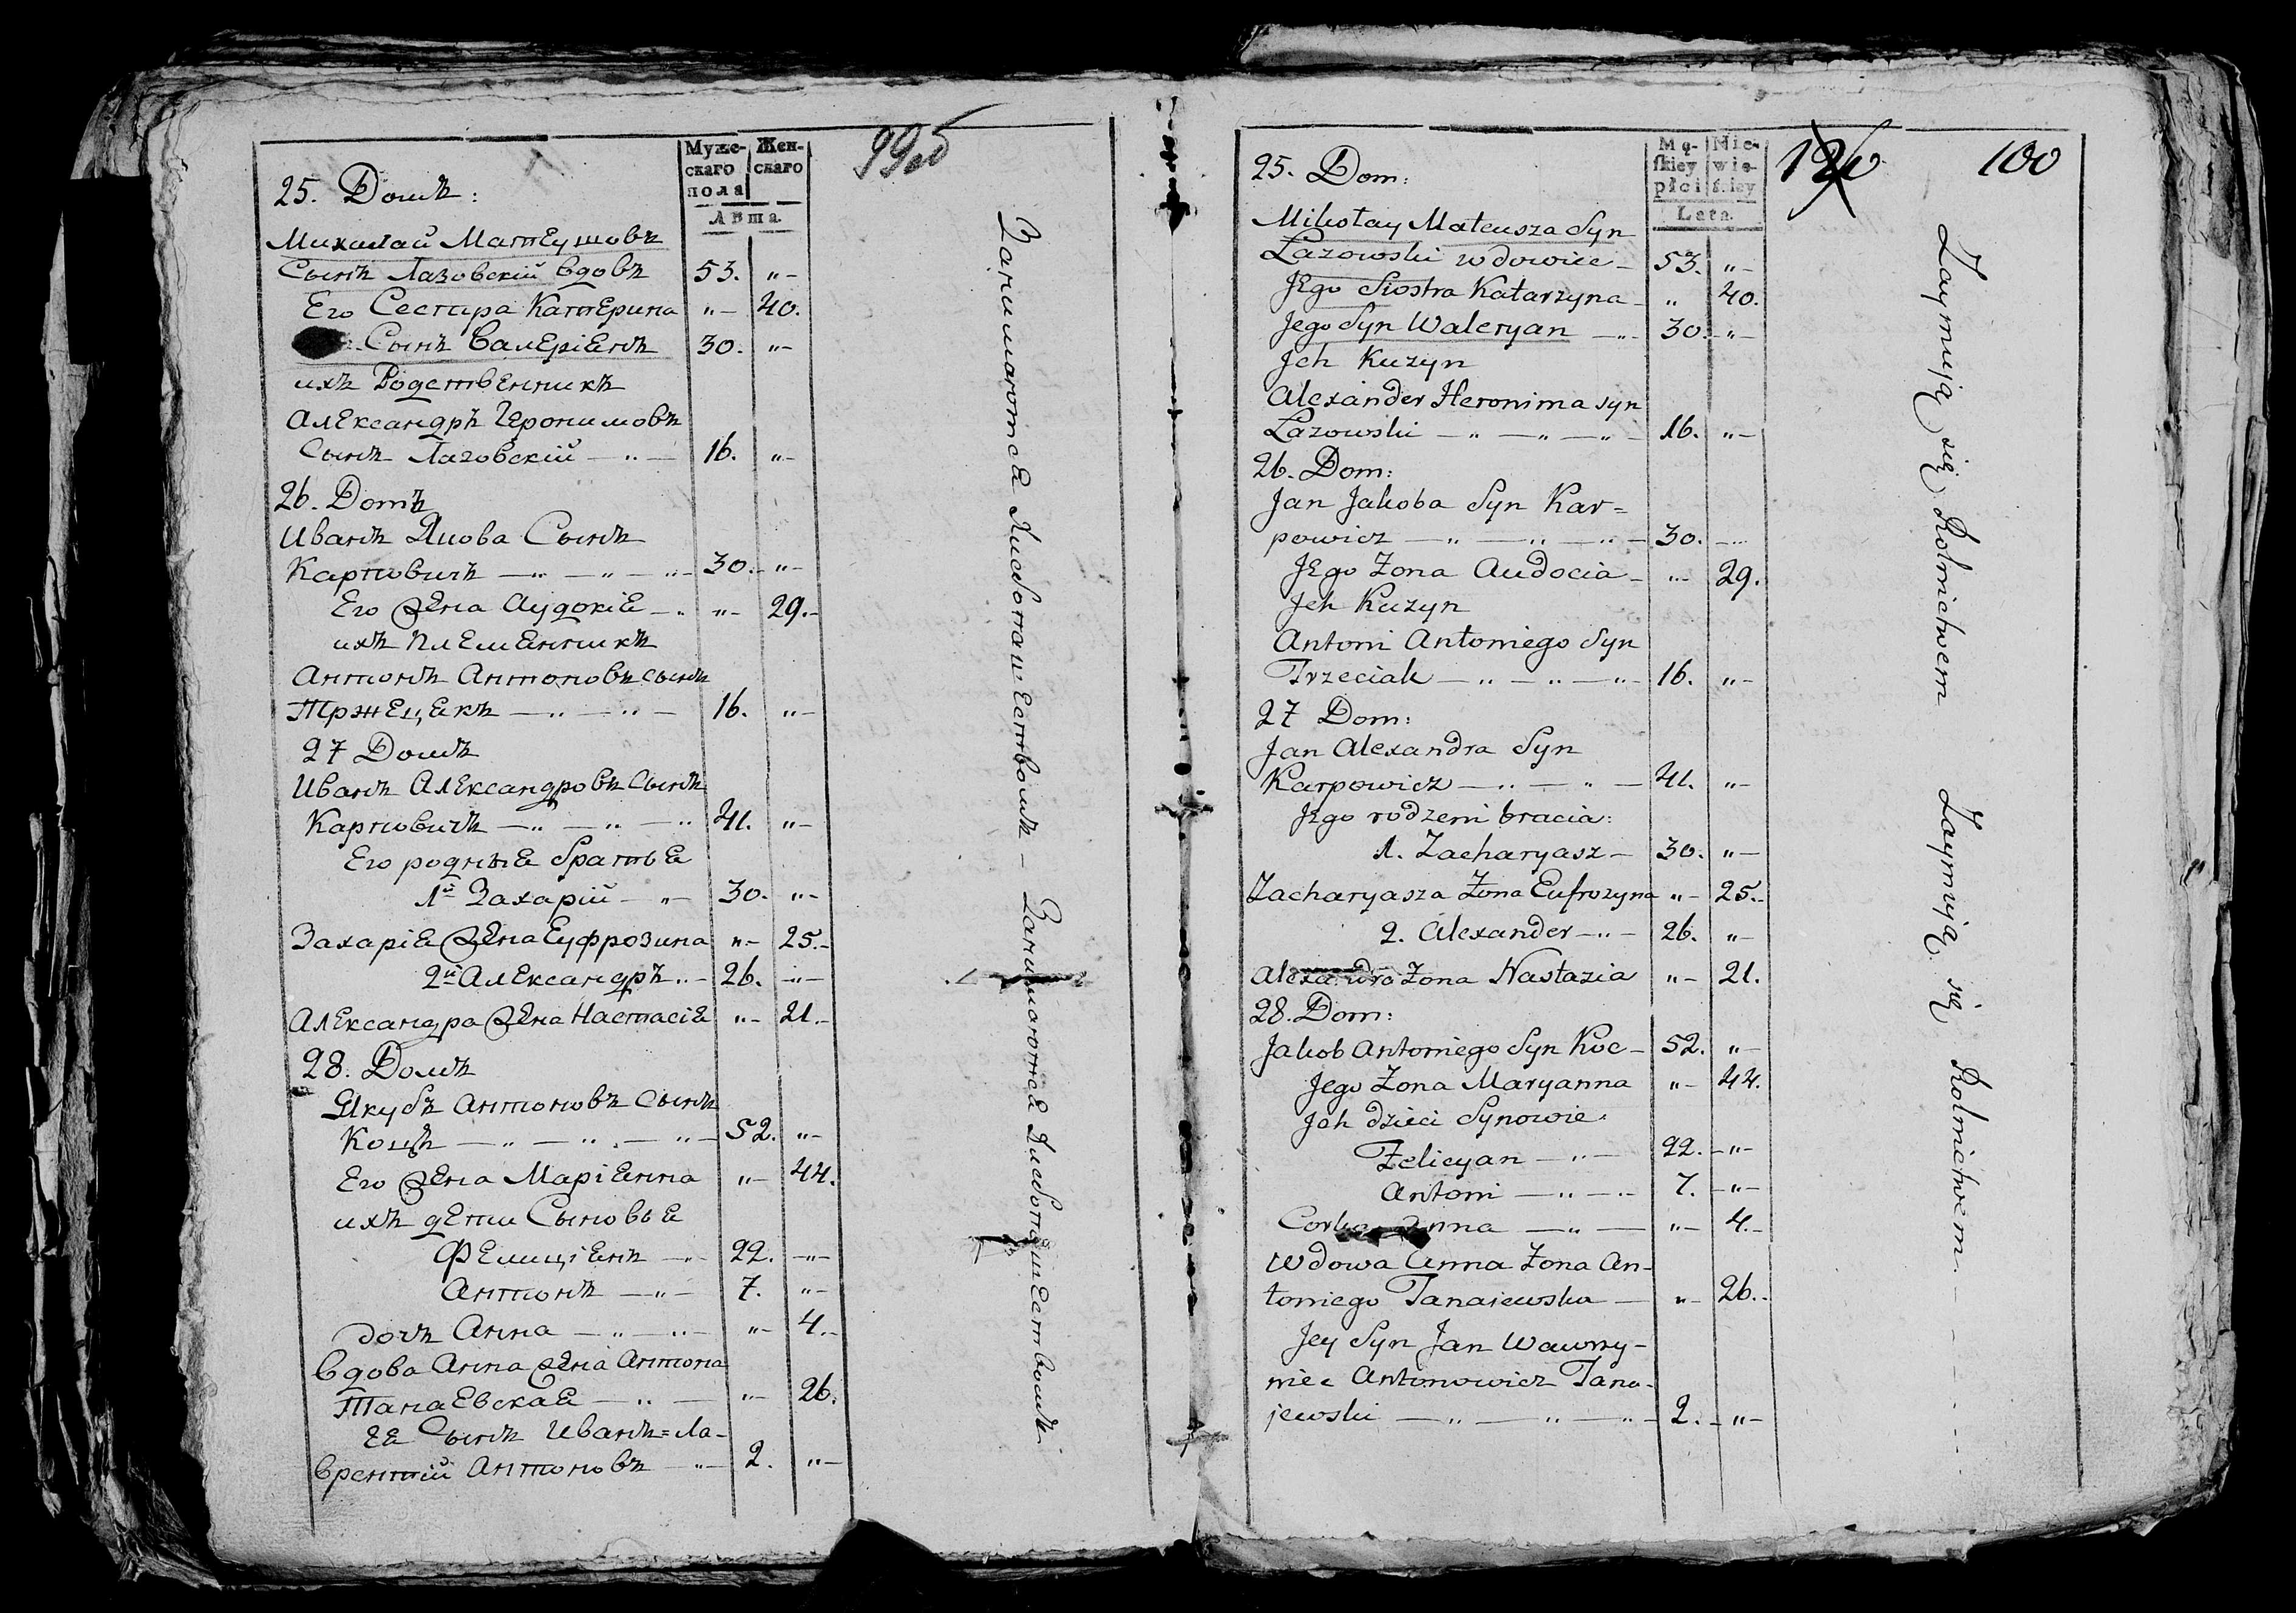 99об
Муже-
скаго
пола
Жен-
скаго
Лѣта
25. Домъ:
Миколай Матеушовъ
Сынъ Лазовскій Вдовъ 53. "-
Его Сестра Катерина "- 40.
Сынъ Валеріянъ 30. "-
ихъ Родственникъ
Александръ Геронимовъ
Сынъ Лазовскій — " — 16. "-
26. Домъ
Иванъ Якова Сынъ
Карповичъ — " — " — "- 30. "-
Его Жена Аудокія — " "- 29.-
ихъ племянникъ
Антонъ Антоновъ сынъ
Тржецякъ — " — " — 16. "-
27 Домъ
Иванъ Александровъ Сынъ
Карповичъ — " — " — " 41. "-
Его родныя братья
1й Захарій — "- 30. "-
Захарія Жена Еуфрозина "- 25.-
2й Александръ "- 26. -"-
Александра Жена Настасія "- 21.-
28. Домъ
Якубъ Антоновъ Сынъ
Коцъ — " — " — "- 52. "-
Его Жена Маріянна "- 44.
ихъ дети Сыновья
Фелиціянъ — " 22. -"-
Антонъ — "- 7. "-
дочъ Анна — " — "- "- 4.-
Вдова Анна Жена Антона
Танаевская — " — "- 26.
Ея Сынъ Иванъ=Ла-
врентій Антоновъ — "- 2. "-
Занимаются Хлебопашествомъ — Занимаются Хлебопашествомъ.
100
Mę-
skiey
płci
Nie-
wie-
śkiey
Lata.
25. Dom:
Mikołay Mateusza Syn
Łazowski wdowiec — 53. "-
Jego Siostra Katarzyna - " 40.
Jego Syn Waleryan — "- 30. "-
Jch Kuzyn
Alexander Heronima syn
Łazowski — " — " — "- 16. "-
26. Dom:
Jan Jakoba Syn Kar=
powicz — " — " — "- 30. -"-
Jego Zona Audocia - "- 29.
Jch Kuzyn
Antoni Antoniego Syn
Trzeciak — " — " — "- 16. "-
27 Dom:
Jan Alexandra Syn
Karpowicz — " — " — 41. "-
Jego rodzeni bracia:
1. Zacharyasz — 30. "-
Zacharyasza Zona Eufrozyna "- 25.-
2. Alexander — "- 26. "-
Alexandra Zona Nastazia "- 21.
28. Dom:
Jakob Antoniego Syn Koc - 52. "-
Jego Zona Maryanna "- 44.
Jch dzieci Synowie:
Felicyan — "- 22. -"-
Antoni — " — "- 7. -"-
Corka Anna — " — "- 4.-
Wdowa Anna Zona An-
toniego Tanajewska — "- 26.-
Jey Syn Jan Wawrzy-
niec Antonowicz Tana-
jewski — " — " — "- 2. -"-
Zaymują się Rolnictwem Zaymują się Rolnictwem.